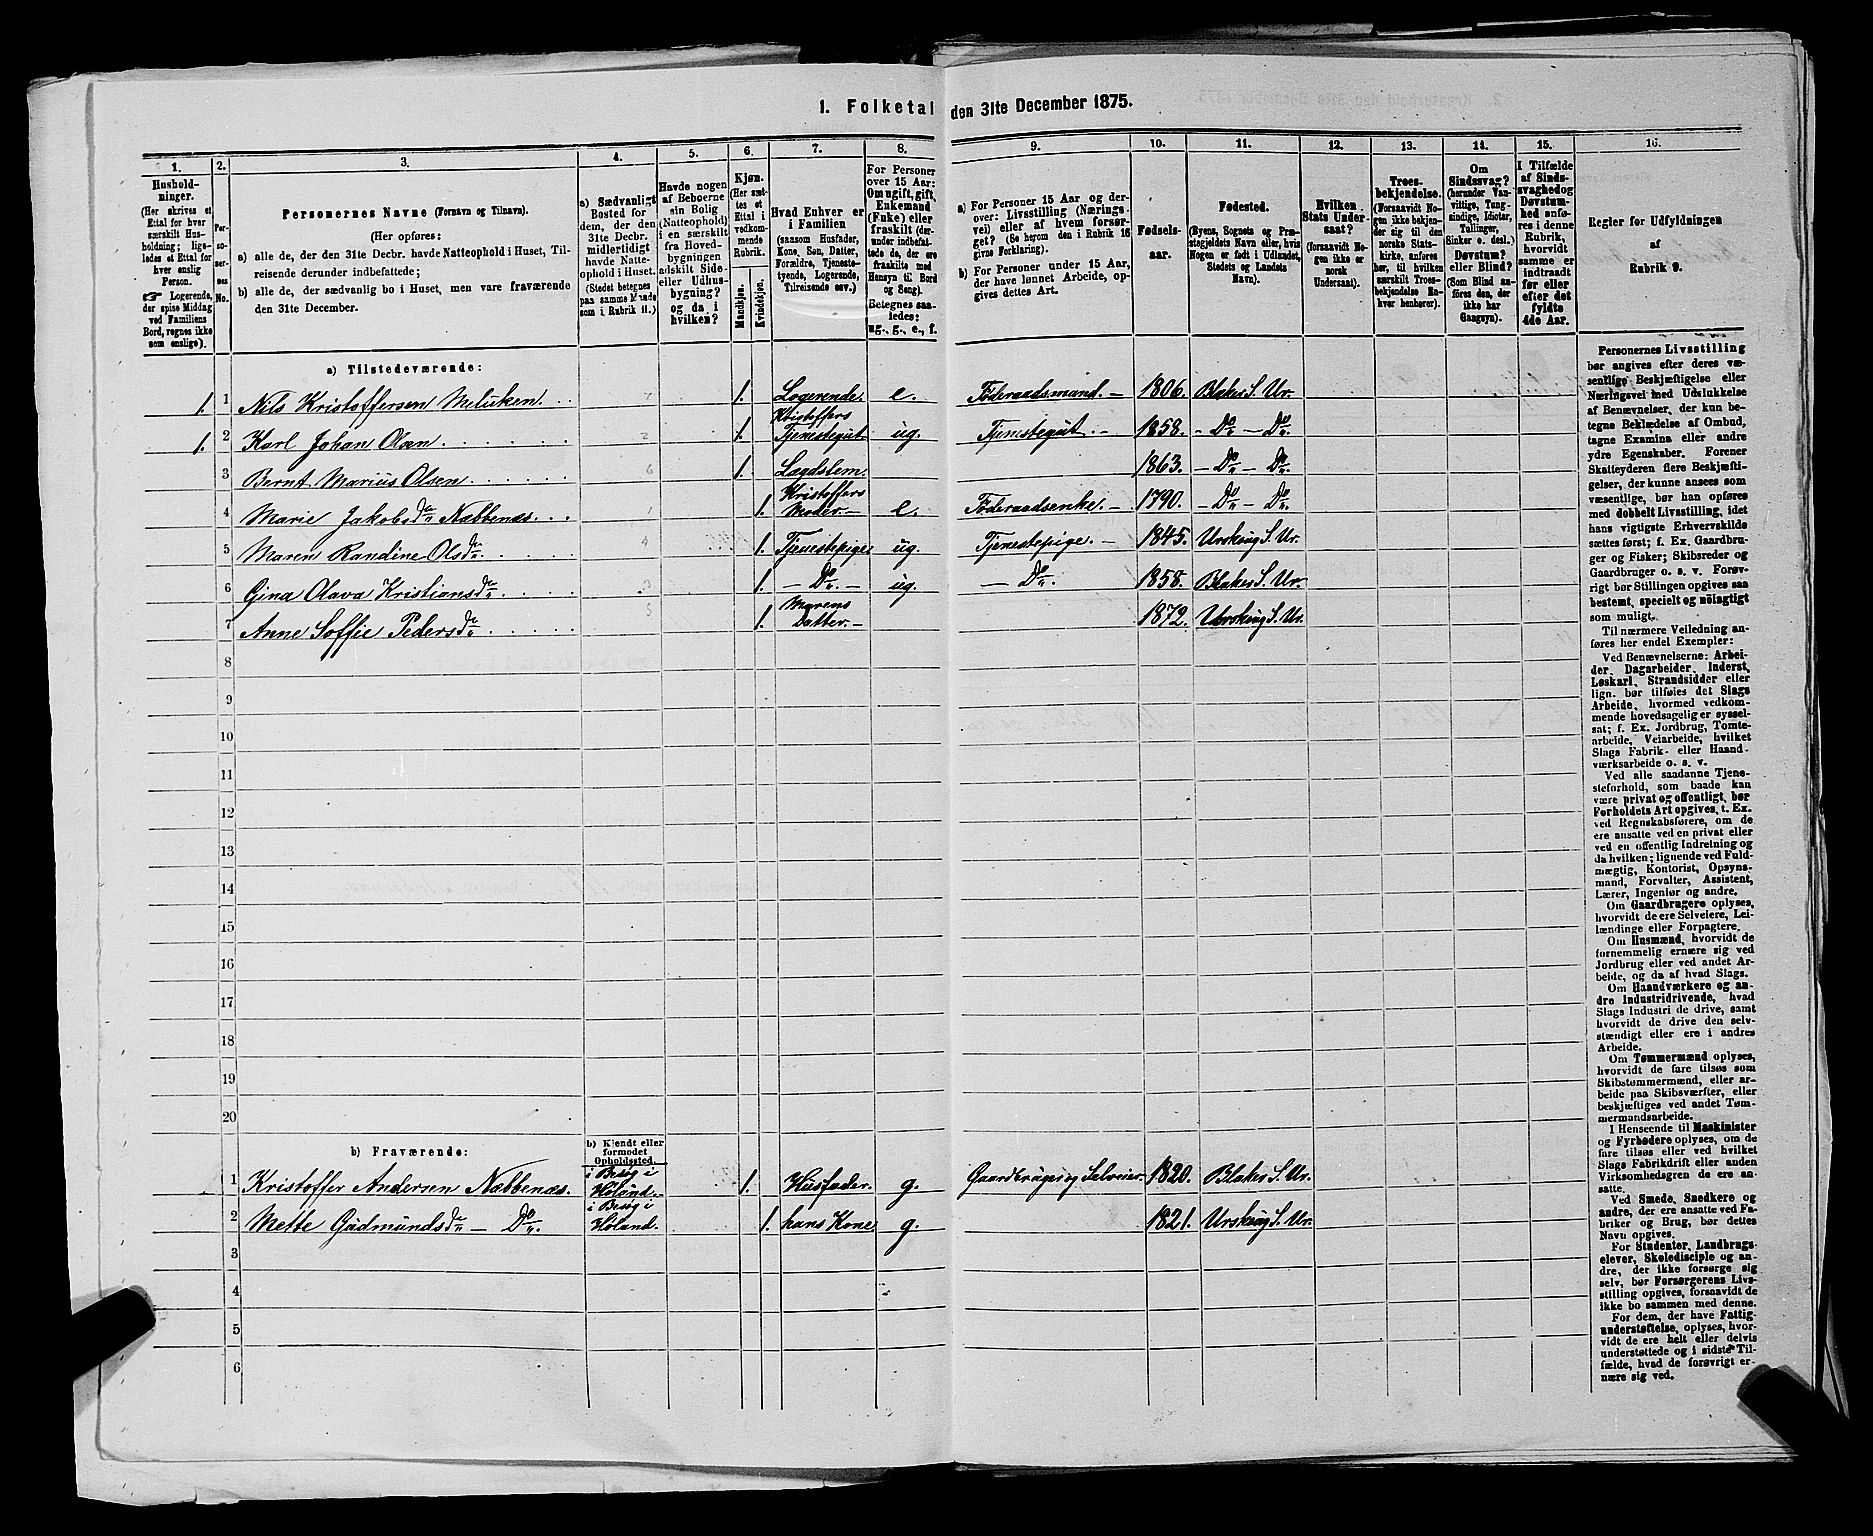 1. Folketal den 31te December 1875.
1.
Hushold-
ninger.
(Her skrives et
Ettal for hver
særskilt Hus-
holdning; lige-
ledes et Ettal for
hver enslig
Person.
☞ Logerende,
der spise Middag
ved Familiens
Bord, regnes ikke
som enslige).
2.
Per-
so-
ner-
nes
No.
3.
Personernes Navne (Fornavn og Tilnavn).
(Her opføres:
a) alle de, der den 31te Decbr. havde Natteophold i Huset, Til-
reisende derunder indbefattede;
b) alle de, der sædvanlig bo i Huset, men vare fraværende
den 31te December.
4.
a) Sædvanligt
Bosted for
dem, der den
31te Decbr.
midlertidigt
havde Natte-
ophold i Huset.
(Stedet betegnes
paa samme Maade
som i Rubrik 11.)
5.
Havde nogen
af Beboerne
sin Bolig
(Natteophold)
i en særskilt
fra Hoved-
bygningen
adskilt Side-
eller Udhus-
bygning?
og da i
hvilken?
6.
Kjøn.
(Her sæt-
tes et
Ettal i
vedkom-
mende
Rubrik.
Mandkjøn.
Kvindekjøn.
7.
Hvad Enhver er
i Familien
(saasom Husfader,
Kone, Søn, Datter,
Forældre, Tjeneste-
tyende, Logerende,
Tilreisende osv.)
8.
For Personer
over 15 Aar:
Om ugift, gift,
Enkemand
(Enke) eller
fraskilt (der-
under indbefat-
tede de, der ere
fraskilte med
Hensyn til Bord
og Seng).
Betegnes saa-
ledes:
ug., g., e., f.
9.
a) For Personer 15 Aar og der-
over: Livsstilling (Nærings-
vei) eller af hvem forsør-
get? (Se herom den i Rubrik 16
givne Forklaring).
b) For Personer under 15 Aar,
der have lønnet Arbeide, op-
gives dettes Art.
10.
Fødsels-
aar.
11.
Fødested.
(Byens, Sognets og Præ-
stegjeldets Navn eller, hvis
Nogen er født i Udlandet,
Stedets og Landets
Navn).
12.
Hvilken
Stats Under-
saat?
(forsaavidt No-
gen ikke er
norsk
Undersaat).
13.
Troes-
bekjendelse.
(Forsaavidt No-
gen ikke bekjen-
der sig til den
norske Stats-
kirke, anføres
her, til hvilken
særskilt Troes-
bekjendelse En-
hver henhører).
14.
Om
Sindssvag?
(herunder Van-
vittige, Tung-
sindige, Idioter,
Tullinger,
Sinker o. desl.)
Døvstum?
eller Blind?
(Som Blind an-
føres den, der
ikke har
Gangsyn).
15.
I Tilfælde
af Sinds-
svaghed og
Døvstum-
hed anfø-
res i denne
Rubrik,
hvorvidt
samme er
indtraadt
før eller
efter det
fyldte
4de Aar.
16.
Regler for Udfyldningen
af
Rubrik 9.
a) Tilstedeværende:
1. 1 Nils Kristoffersen Meluken 1. Logerende e. Føderaadsmand. 1806. Blaker S. Ur.
1. 2 Karl Johan Olsen 1. Kristoffers Tjenestegut ug. Tjenestegut 1858. Do Do
3 Bernt Marius Olsen 1. Lægdslem. 1863. Do Do
4 Marie Jakobsdr Næbbenæs 1. Kristoffers Moder e. Føderaadsenke. 1790. Do Do
5 Maren Randine Olsdr 1. Tjenestepige ug. Tjenestepige. 1845. Urskoug S. Ur.
6 Gina Olava Kristiansdr 1. Do ug. Do 1858. Blaker S. Ur.
7 Anne Soffie Pedersdr 1. Marens Datter 1872. Urskoug S. Ur.
8
9
10
11
12
13
14
15
16
17
18
19
20
b) Fraværende:
b) Kjendt eller
formodet
Opholdssted.
1 Kristoffer Andersen Næbbenæs. i Besøg i Høland. 1. Husfader. g. Gaardbruger og Selveier. 1820. Blaker S. Ur.
2 Mette Gudmundsdr Do i Besøg i Høland. 1. hans Kone g. 1821. Urskoug S. Ur.
3
4
5
6
Personernes Livsstilling
bør angives efter deres væ-
sentlige Beskjæftigelse eller
Næringsvei med Udelukkelse
af Benævnelser, der kun be-
tegne Beklædelse af Ombud,
tagne Examina eller andre
ydre Egenskaber. Forener
Skatteyderen flere Beskjæfti-
gelser, der kunne ansees som
væsentlige, bør han opføres
med dobbelt Livsstilling, idet
hans vigtigste Erhvervskilde
sættes først; f. Ex. Gaardbru-
ger og Fisker; Skibsreder og
Gaardbruger o. s. v. Forøv-
rigt bør Stillingen opgives saa
bestemt, specielt og nøiagtigt
som muligt.
Til nærmere Veiledning an-
føres her endel Exempler:
Ved Benævnelserne: Arbei-
der, Dagarbeider, Inderst,
Løskarl, Strandsidder eller
lign. bør tilføies det Slags
Arbeide, hvormed vedkom-
mende hovedsagelig er syssel-
sat; f. Ex. Jordbrug, Tomte-
arbeide, Veiarbeide, hvilket
Slags Fabrik- eller Haand-
værksarbeide o. s. v.
Ved alle saadanne Tjene-
steforhold, som baade kan
være privat og offentligt, bør
Forholdets Art opgives, t. Ex.
ved Regnskabsførere, om de
ere ansatte ved en privat eller
ved en offentlig Indretning og
da hvilken; lignende ved Fuld-
mægtig, Kontorist, Opsyns-
mand, Forvalter, Assistent,
Lærer, Ingeniør og andre.
Om Gaardbrugere oplyses,
hvorvidt de ere Selveiere, Lei-
lændinge eller Forpagtere.
Om Husmænd, hvorvidt de
fornemmelig ernære sig ved
Jordbrug eller ved andet Ar-
beide, og da af hvad Slags.
Om Haandværkere og an-
dre Industridrivende, hvad
Slags Industri de drive, samt
hvorvidt de drive den selv-
stændigt eller ere i andres
Arbeide.
Om Tømmermænd oplyses,
hvorvidt de fare tilsøs som
Skibstømmermænd, eller ar-
beide paa Skibsværfter, eller
beskjæftiges ved andet Tøm-
mermandsarbeide.
I Henseende til Maskinister
og Fyrbødere oplyses, om de
fare tilsøs eller ved hvilket
Slags Fabrikdrift eller anden
Virksomhedsgren de ere an-
satte.
Ved Smede, Snedkere og
andre, der ere ansatte ved Fa-
briker og Brug, bør dettes
Navn opgives.
For Studenter, Landbrugs-
elever, Skoledisciple og an-
dre, der ikke forsørge sig
selv, bør Forsørgerens Livs-
stilling opgives, forsaavidt de
ikke bo sammen med denne.
For dem, der have Fattig-
understøttelse, oplyses, hvor-
vidt de ere helt eller delvis
understøttede og i sidste Til-
fælde, hvad de forøvrigt er-
nære sig ved.